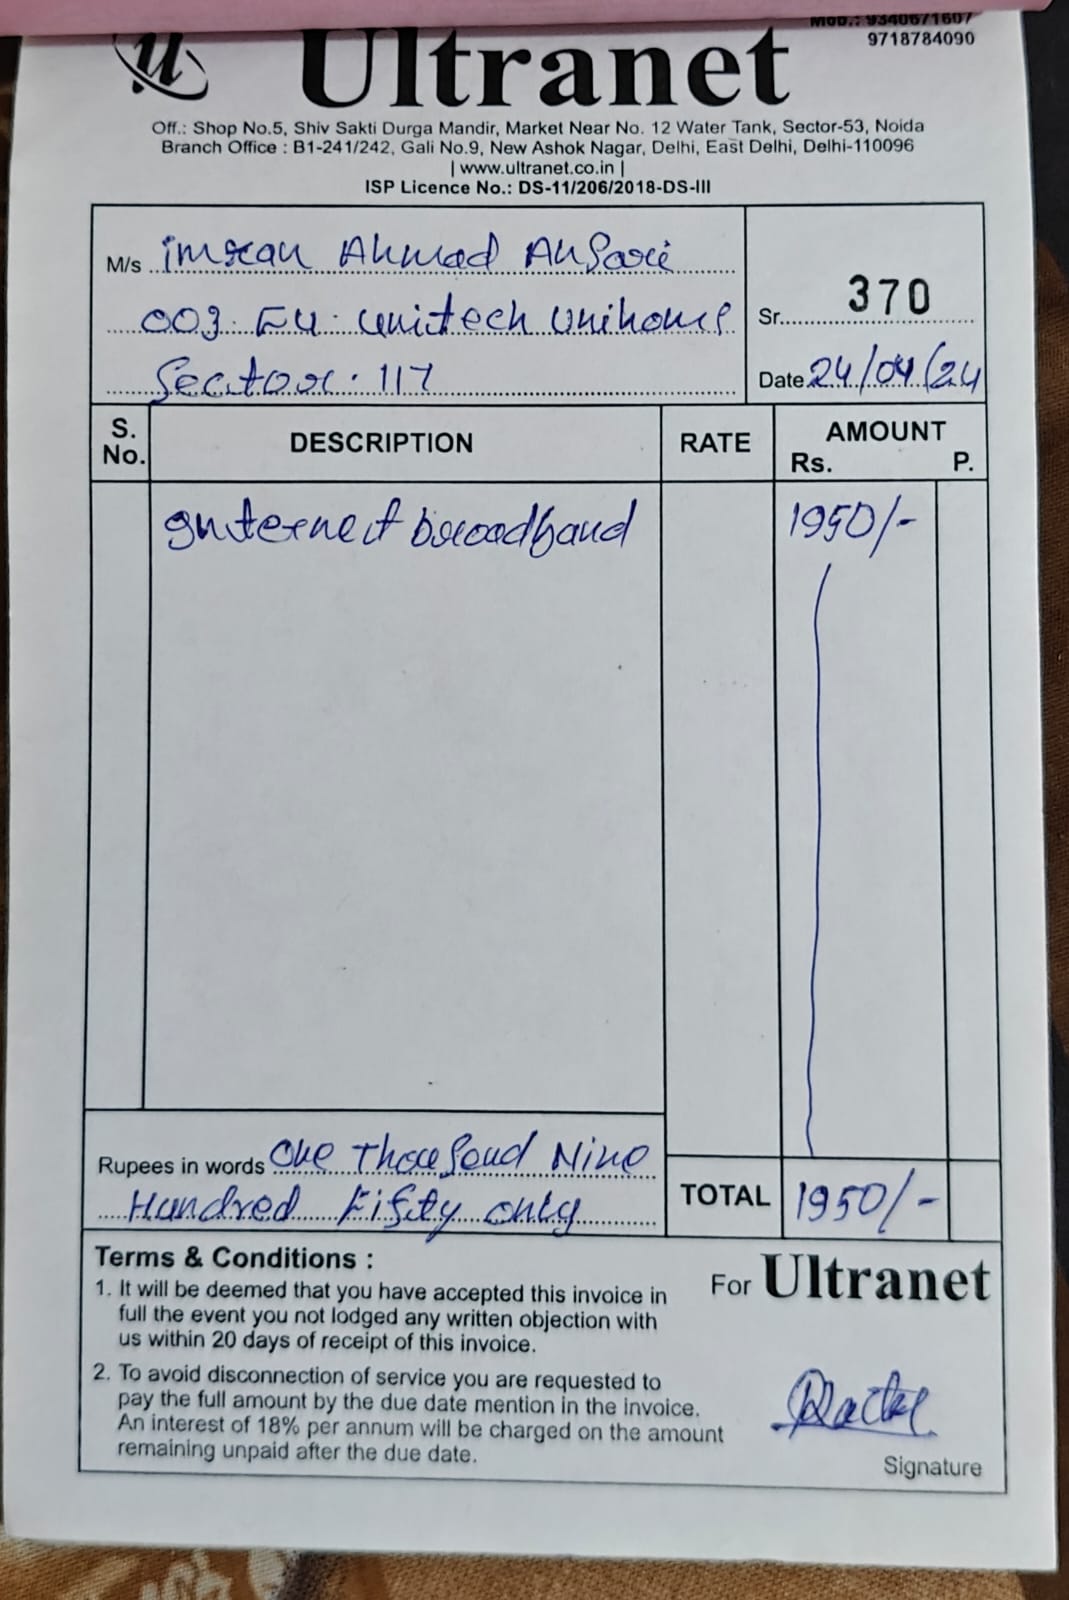 Mob.: 9340671607
9718784090
u Ultranet
Off.: Shop No.5, Shiv Sakti Durga Mandir, Market Near No. 12 Water Tank, Sector-53, Noida
Branch Office : B1-241/242, Gali No.9, New Ashok Nagar, Delhi, East Delhi, Delhi-110096
| www.ultranet.co.in |
ISP Licence No.: DS-11/206/2018-DS-III
M/s imran Ahmad AnSari
003 E4 Unitech Unihomes
Sector. 117
Sr. 370
Date 24/04/24
S. No. DESCRIPTION RATE AMOUNT
Rs. P.
Internet broadband 1950/-
Rupees in words One Thousand Nine
Hundred Fifity only
TOTAL 1950/-
Terms & Conditions :
1. It will be deemed that you have accepted this invoice in
full the event you not lodged any written objection with
us within 20 days of receipt of this invoice.
2. To avoid disconnection of service you are requested to
pay the full amount by the due date mention in the invoice.
An interest of 18% per annum will be charged on the amount
remaining unpaid after the due date.
For Ultranet
Signature